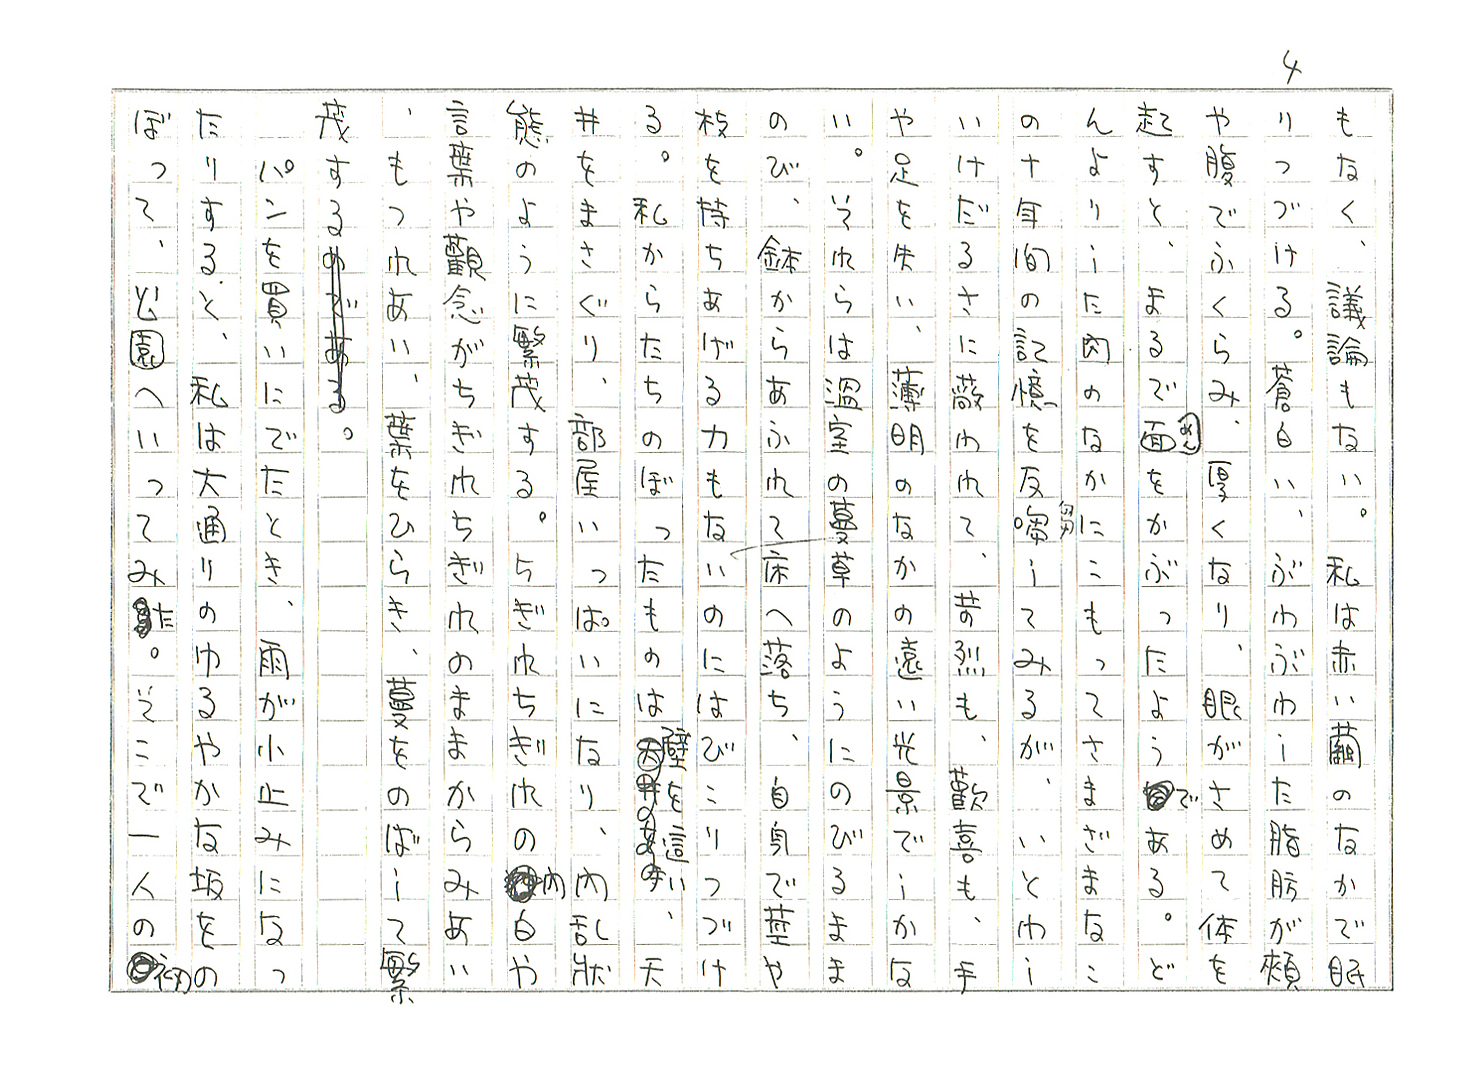 4
もなく、議論もない。私は赤い繭のなかで眠
りつづける。蒼白い、ぶわぶわした脂肪が頰
や腹でふくらみ、厚くなり、眼がさめて体を
起すと、まるで面(めん)をかぶったようである。ど
んよりした肉のなかにこもってさまざまなこ
の十年間の記憶を反芻してみるが、いとわし
いけだるさに蔽われて、苛烈も、歡喜も、手
や足を失い、薄明のなかの遠い光景でしかな
い。それらは温室の蔓草のようにのびるまま
のび、鉢からあふれて床へ落ち、自身で莖や
枝を持ちあげる力もないのにはびこりつづけ
る。私からたちのぼったものは壁を這い、天
井をまさぐり、部屋いっぱいになり、内乱狀
態のように繁茂する。ちぎれちぎれの内白や
言葉や觀念がちぎれちぎれのままからみあい
、もつれあい、葉をひらき、蔓をのばして繁
茂する。
パンを買いにでたとき、雨が小止みになっ
たりすると、私は大通りのゆるやかな坂をの
ぼって、公園へいってみた。そこで一人の初